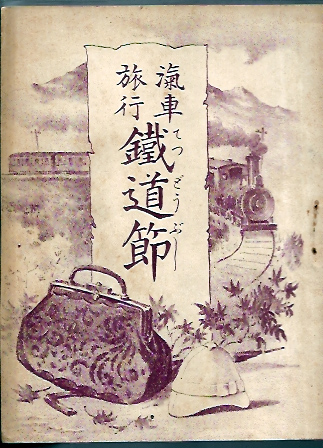 汽車
旅行
鐵道節
てつどうぶし